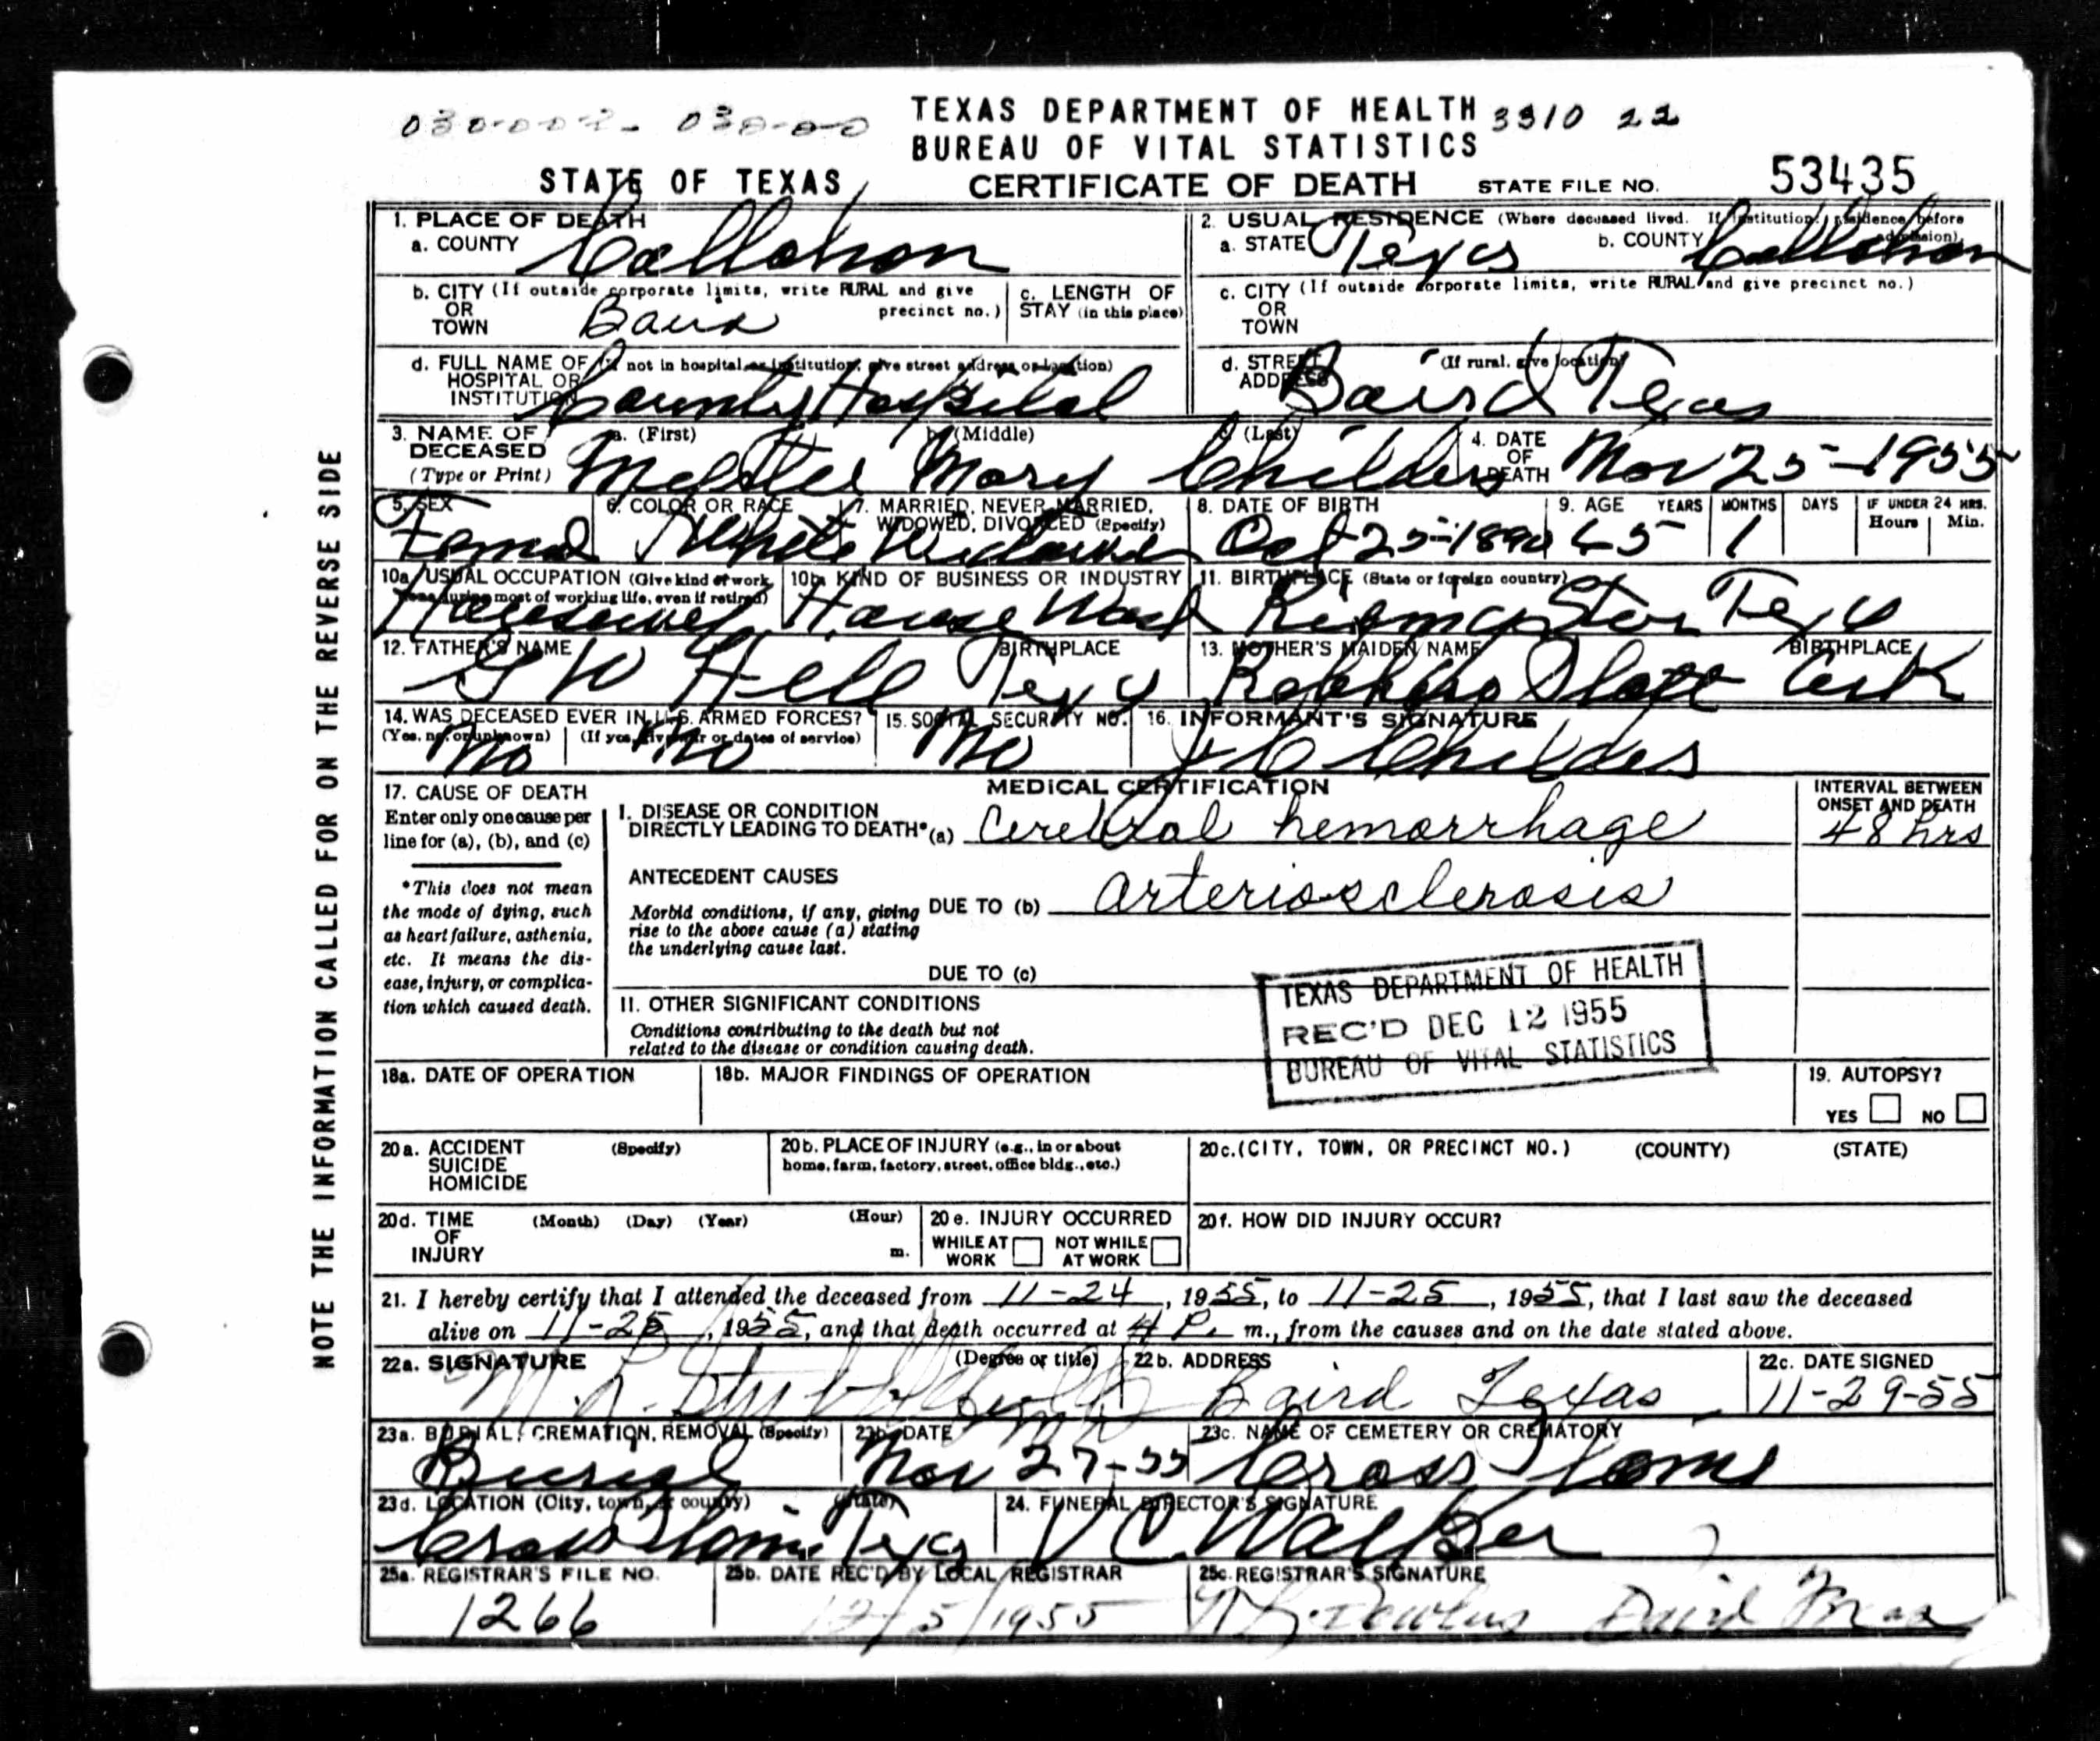 TEXAS DEPARTMENT OF HEALTH 3310 22
BUREAU OF VITAL STATISTICS
STATE OF TEXAS CERTIFICATE OF DEATH STATE FILE NO. 53435
NOTE THE INFORMATION CALLED FOR ON THE REVERSE SIDE
1. PLACE OF DEATH
a. COUNTY Callahan
2. USUAL RESIDENCE (Where deceased lived. If institution: residence before admission).
a. STATE Texas b. COUNTY Callahan
b. CITY (If outside corporate limits, write RURAL and give precinct no.)
OR TOWN Baird
c. LENGTH OF STAY (in this place)
c. CITY (If outside corporate limits, write RURAL and give precinct no.)
OR TOWN
d. FULL NAME OF (If not in hospital or institution, give street address or location)
HOSPITAL OR INSTITUTION County Hospital
d. STREET ADDRESS (If rural, give location)
Baird Texas
3. NAME OF DECEASED (Type or Print)
a. (First) b. (Middle) Mary c. (Last) Childers
4. DATE OF DEATH Nov 25-1955
5. SEX Femal
6. COLOR OR RACE White
7. MARRIED, NEVER MARRIED, WIDOWED, DIVORCED (Specify) Widowed
8. DATE OF BIRTH Oct 25-1890
9. AGE YEARS 65 MONTHS 1 DAYS IF UNDER 24 HRS. Hours Min.
10a. USUAL OCCUPATION (Give kind of work done during most of working life, even if retired) Housewife
10b. KIND OF BUSINESS OR INDUSTRY House Work
11. BIRTHPLACE (State or foreign country)
12. FATHER'S NAME BIRTHPLACE
G W Hill Texas
13. MOTHER'S MAIDEN NAME BIRTHPLACE
Ark
14. WAS DECEASED EVER IN U.S. ARMED FORCES?
(Yes, no, or unknown) (If yes, give war or dates of service)
No No
15. SOCIAL SECURITY NO. No
16. INFORMANT'S SIGNATURE
J C Childers
17. CAUSE OF DEATH
Enter only one cause per
line for (a), (b), and (c)
*This does not mean
the mode of dying, such
as heart failure, asthenia,
etc. It means the dis-
ease, injury, or complica-
tion which caused death.
MEDICAL CERTIFICATION
INTERVAL BETWEEN
ONSET AND DEATH
I. DISEASE OR CONDITION
DIRECTLY LEADING TO DEATH* (a) Cerebral hemorrhage 48 hrs
ANTECEDENT CAUSES
Morbid conditions, if any, giving
rise to the above cause (a) stating
the underlying cause last.
DUE TO (b) arteriosclerosis
DUE TO (c)
II. OTHER SIGNIFICANT CONDITIONS
Conditions contributing to the death but not
related to the disease or condition causing death.
TEXAS DEPARTMENT OF HEALTH
REC'D DEC 12 1955
BUREAU OF VITAL STATISTICS
18a. DATE OF OPERATION 18b. MAJOR FINDINGS OF OPERATION 19. AUTOPSY?
YES NO
20a. ACCIDENT (Specify)
SUICIDE
HOMICIDE
20b. PLACE OF INJURY (e.g., in or about
home, farm, factory, street, office bldg., etc.)
20c. (CITY, TOWN, OR PRECINCT NO.) (COUNTY) (STATE)
20d. TIME (Month) (Day) (Year) (Hour)
OF
INJURY m.
20e. INJURY OCCURRED
WHILE AT WORK NOT WHILE AT WORK
20f. HOW DID INJURY OCCUR?
21. I hereby certify that I attended the deceased from 11-24, 1955, to 11-25, 1955, that I last saw the deceased
alive on 11-25, 1955, and that death occurred at 4 P. m., from the causes and on the date stated above.
22a. SIGNATURE (Degree or title)
22b. ADDRESS
Baird Texas
22c. DATE SIGNED
11-29-55
23a. BURIAL, CREMATION, REMOVAL (Specify)
Burial
23b. DATE
Nov 27-55
23c. NAME OF CEMETERY OR CREMATORY
Cross Plains
23d. LOCATION (City, town, or county) (State)
Cross Plains Texas
24. FUNERAL DIRECTOR'S SIGNATURE
V C Walker
25a. REGISTRAR'S FILE NO.
1266
25b. DATE REC'D BY LOCAL REGISTRAR
12/5/1955
25c. REGISTRAR'S SIGNATURE